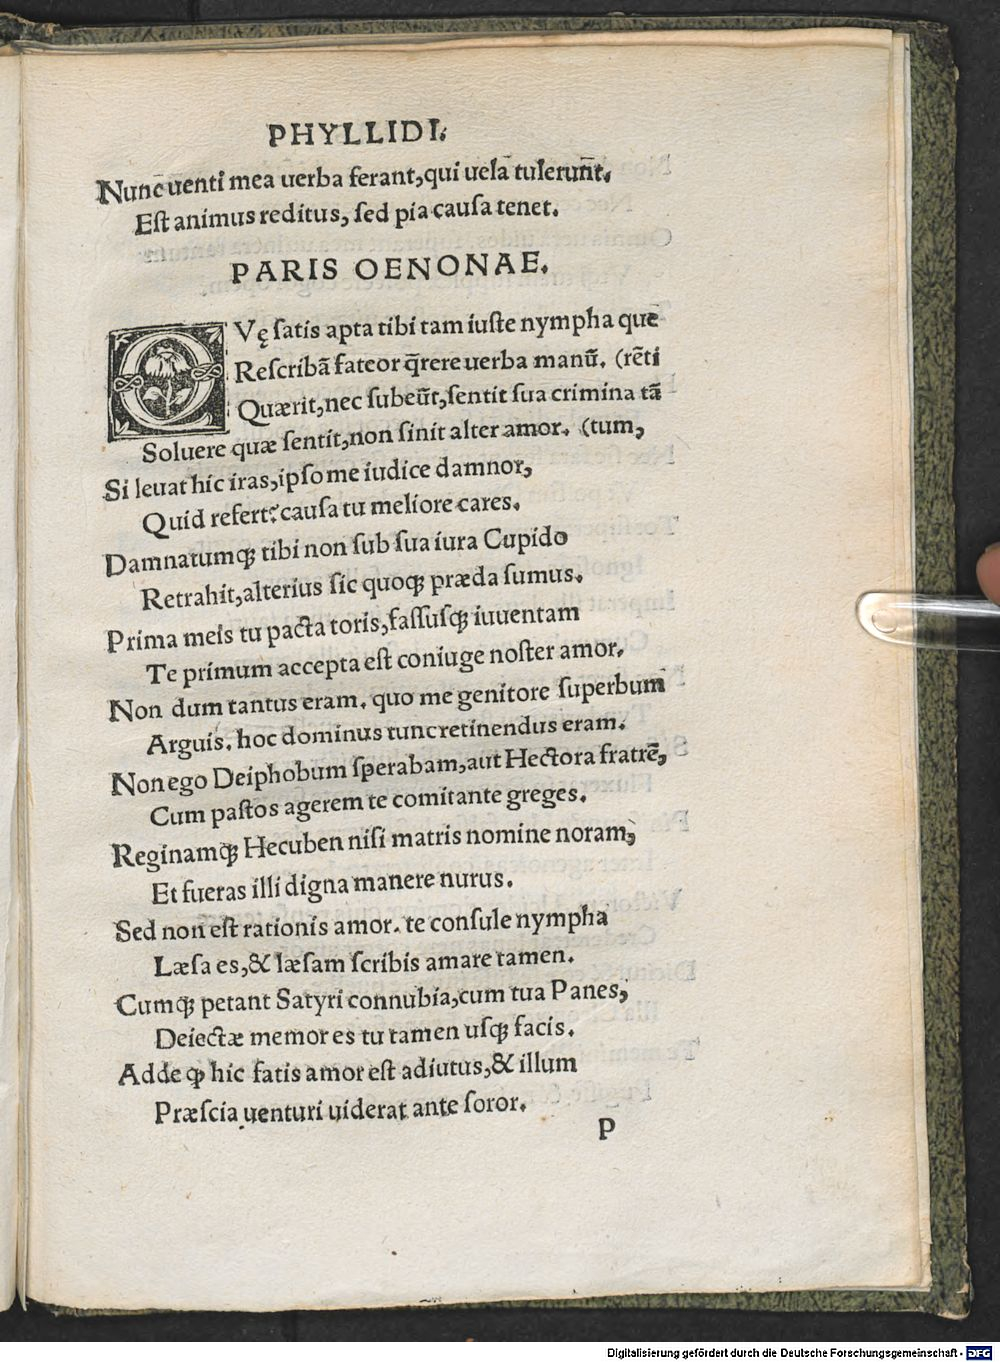 PHYLLIDI.
Nunc uenti mea uerba ferant,qui uela tulerunt.
Eſt animus reditus, ſed pia cauſa tenet.
PARIS OENONAE.
QVę ſatis apta tibi tam iuſte nympha quē
Reſcribā fateor q̄rere uerba manū. (rēti
Quærit,nec ſubeūt,ſentit ſua crimina tā
Soluere quæ ſentit,non ſinit alter amor. (tum,
Si leuat hic iras,ipſo me iudice damnor,
Quid refert?cauſa tu meliore cares.
Damnatumqꝫ tibi non ſub ſua iura Cupido
Retrahit,alterius ſic quoqꝫ præda ſumus.
Prima meis tu pacta toris,faſſuſqꝫ iuuentam
Te primum accepta eſt coniuge noſter amor.
Non dum tantus eram. quo me genitore ſuperbum
Arguis. hoc dominus tunc retinendus eram.
Non ego Deiphobum ſperabam,aut Hectora fratrē,
Cum paſtos agerem te comitante greges.
Reginamqꝫ Hecuben niſi matris nomine noram,
Et fueras illi digna manere nurus.
Sed non eſt rationis amor. te conſule nympha
Læſa es,& læſam ſcribis amare tamen.
Cumqꝫ petant Satyri connubia,cum tua Panes,
Deiectæ memor es tu tamen uſqꝫ facis.
Adde ꝙ hic fatis amor eſt adiutus,& illum
Præſcia uenturi uiderat ante ſoror.
P
Digitalisierung gefördert durch die Deutsche Forschungsgemeinschaft - DFG